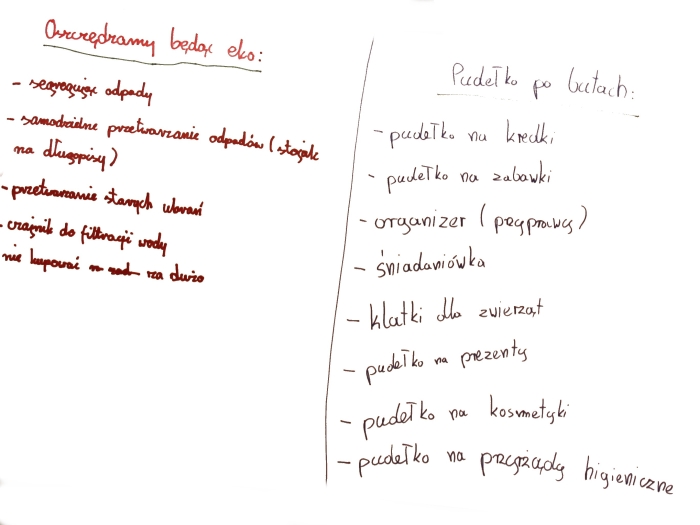 Oszczędzamy będąc eko:
- segregując odpady
- samodzielne przetwarzanie odpadów (stojak
na długopisy)
- przetwarzanie starych ubrań
- czajnik do filtracji wody
nie kupować za dużo
Pudełko po butach:
- pudełko na kredki
- pudełko na zabawki
- organizer (przyprawy)
- śniadaniówka
- klatki dla zwierząt
- pudełko na prezenty
- pudełko na kosmetyki
- pudełko na przyrządy higieniczne